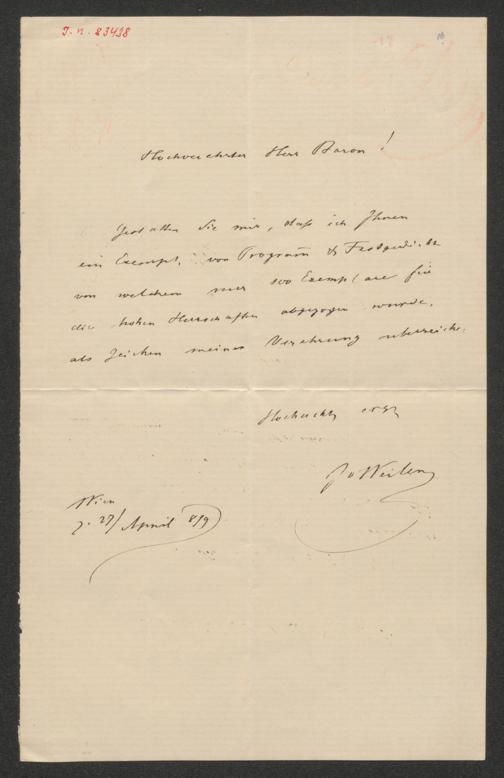 I. N. 23498
Hochverehrter Herr Baron!
Gestatten Sie mir, daß ich Ihnen
ein Exempl. von Program̄ & Festgedichte
von welchem nur 100 Exemplare für
die hohen Herrschaften abgezogen wurde,
als Zeichen meiner Verehrung überreiche.
Hochachtg
J v Weilen
Wien
27/ April 879